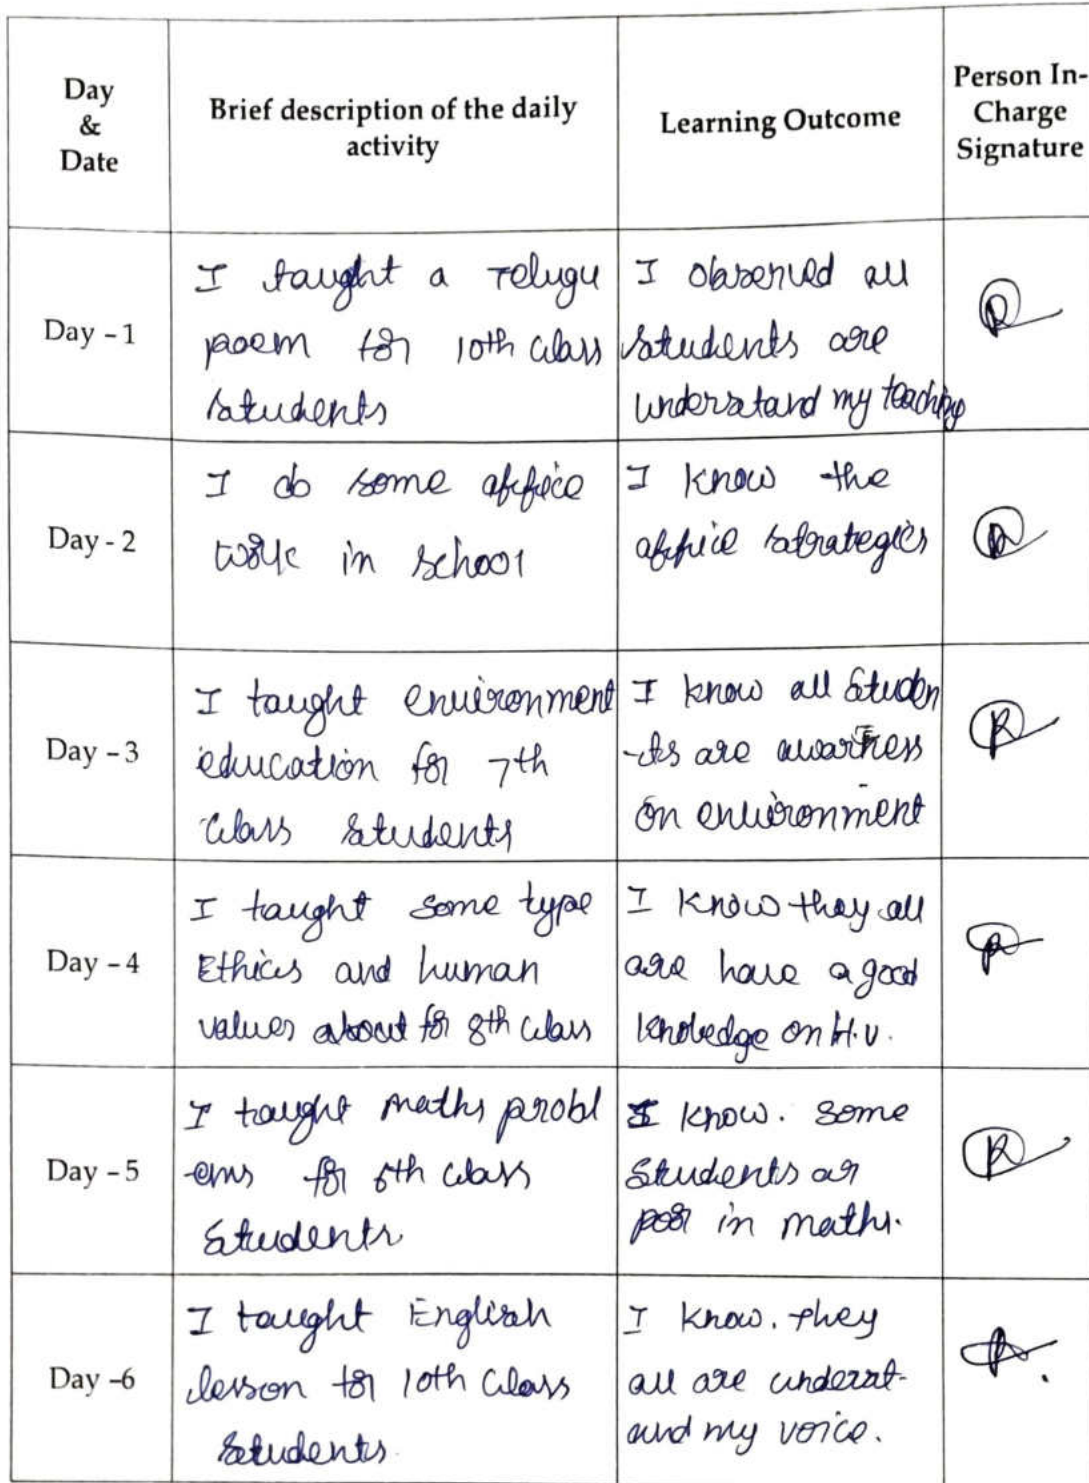 Day
&
Date
Brief description of the daily
activity
Learning Outcome
Person In-
Charge
Signature
Day - 1
I taught a Telugu
poem for 10th class
students
I observed all
students are
understand my teaching
Day - 2
I do some office
work in school
I know the
office strategies
Day - 3
I taught environment
education for 7th
class students
I know all Studen
-ts are awarness
on environment
Day - 4
I taught some type
Ethics and human
values about for 8th class
I know they all
are have a good
knoledge on H.V.
Day - 5
I taught maths probl
-ems for 6th class
students
I know. some
Students ar
poor in maths.
Day -6
I taught English
lesson for 10th class
students.
I know. they
all are underst-
and my voice.